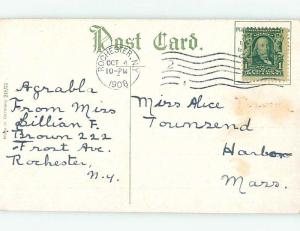 Post Card.
ROCHESTER, N.Y.
OCT 4
10-PM
1908
2
Agrabla
From Miss
Lillian F.
Brown 222
Frost Ave.
Rochester,
N.Y.
Miss Alice
Townsend
Harbor
Mass.